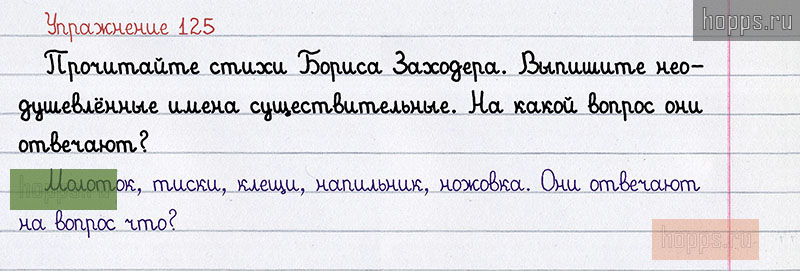 Упражнение 125
hopps.ru
Прочитайте стихи Бориса Заходера. Выпишите нео-
душевлённые имена существительные. На какой вопрос они
отвечают?
Молоток, тиски, клещи, напильник, ножовка. Они отвечают
hopps.ru
на вопрос что?
hopps.ru